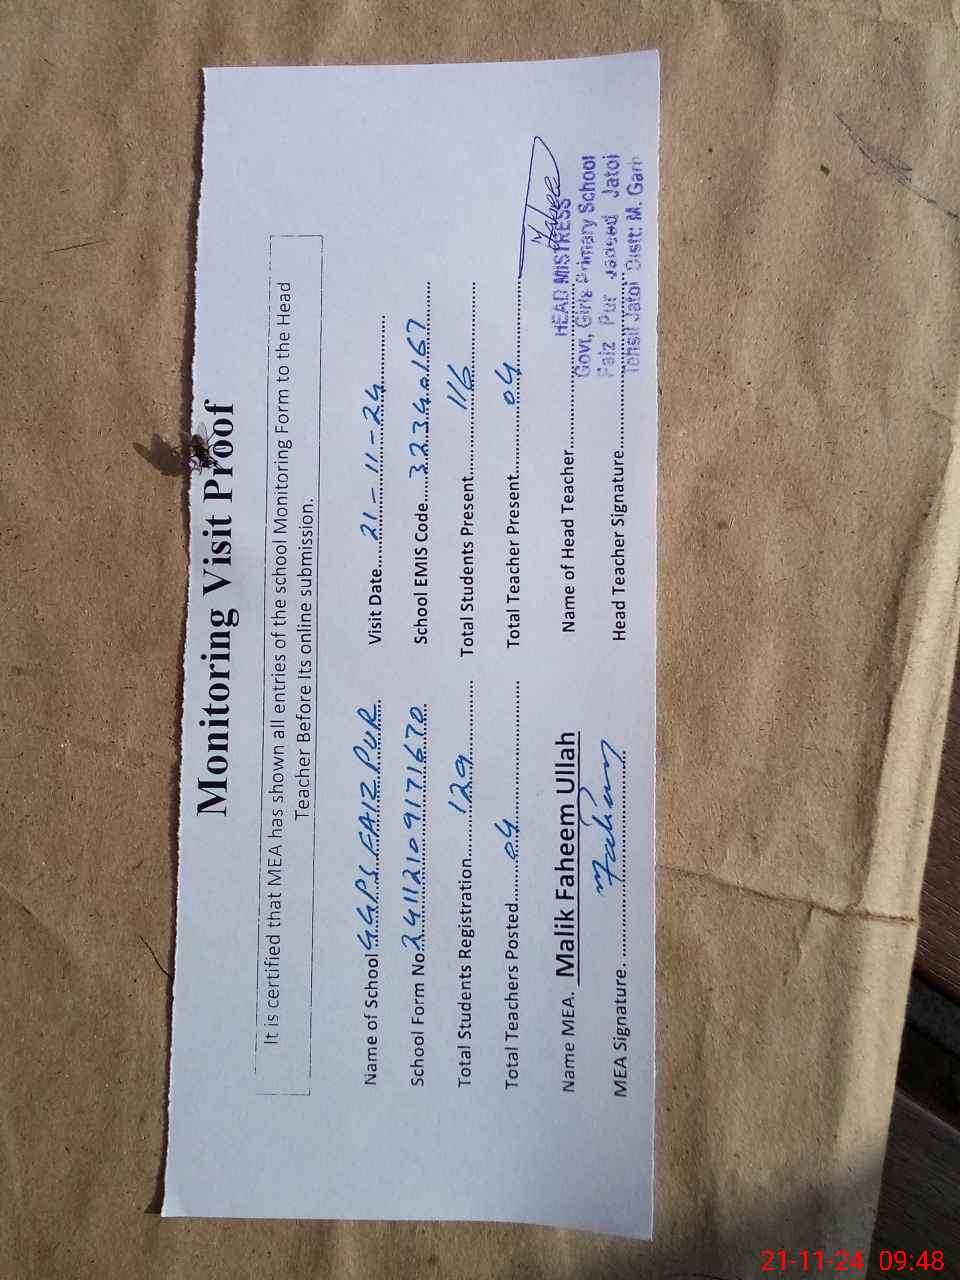 Monitoring Visit Proof
It is certified that MEA has shown all entries of the school Monitoring Form to the Head
Teacher Before Its online submission.
Name of School GGPS FAIZ PUR Visit Date 21-11-24
School Form No. 2411210917 1670 School EMIS Code 32340167
Total Students Registration 129 Total Students Present 116
Total Teachers Posted 04 Total Teacher Present 04
Name MEA. Malik Faheem Ullah Name of Head Teacher
MEA Signature. Faheem Head Teacher Signature
HEAD MISTRESS
Govt, Girls Primary School
Faiz Pur Jadeed Jatoi
Tehsil Jatoi Distt: M. Garh
21-11-24 09:48